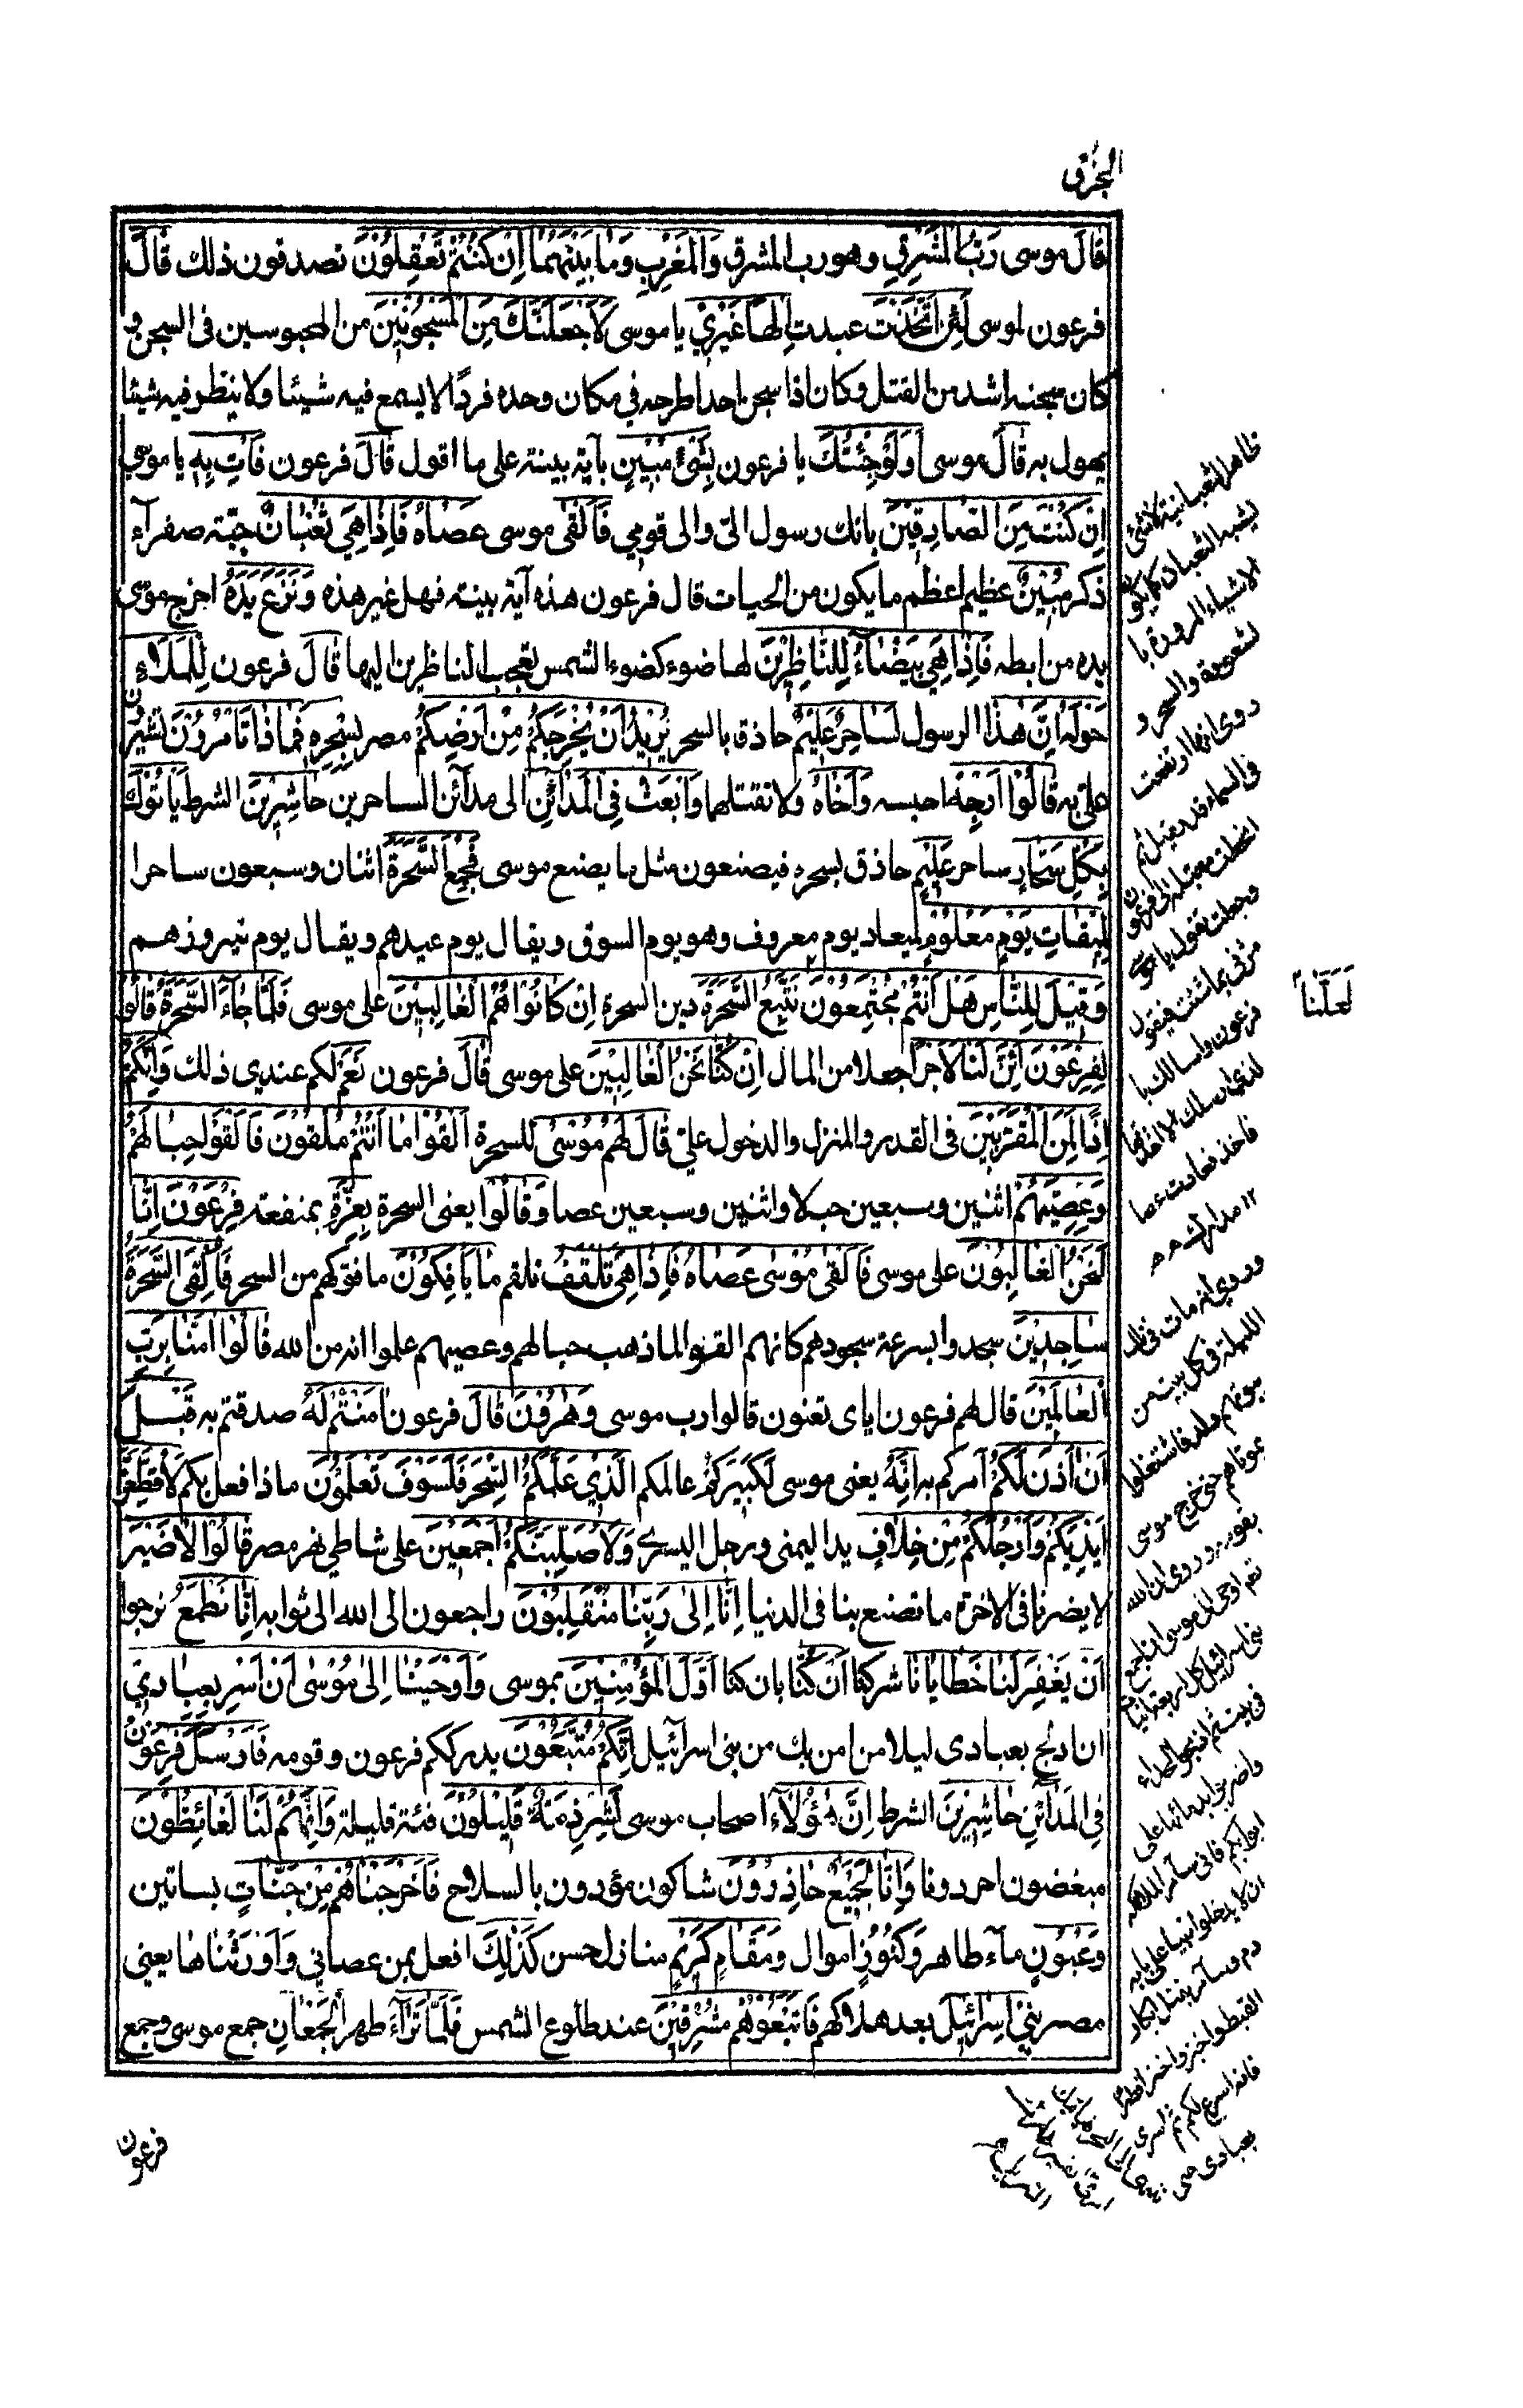 قَالَ موسى رَبُّ الْمَشْرِقِ وهو رب المشرق وَالْمَغْرِبِ وَمَا بَيْنَهُمَا اِنْ كُنْتُمْ تَعْقِلُوْنَ تصدقون ذلك قَالَ
فرعون لموسى لَئِنِ اتَّخَذْتَ عبدت اِلٰهًا غَيْرِيْ يا موسى لَاَجْعَلَنَّكَ مِنَ الْمَسْجُوْنِيْنَ من المحبوسين فى السجن و
كان سجنه اشد من القتل وكان اذا سجن احدا طرحه في مكان وحده فردًا لا يسمع فيه شيئا ولا ينظر فيه شيئا
يهول به قَالَ موسى اَوَلَوْ جِئْتُكَ يا فرعون بِشَىْءٍ مُّبِيْنٍ بآية بينة على ما اقول قَالَ فرعون فَأْتِ بِهٖ يا موسى
اِنْ كُنْتَ مِنَ الصَّادِقِيْنَ بانك رسول الىّ والى قومي فَاَلْقٰى موسى عَصَاهُ فَاِذَا هِيَ ثُعْبَانٌ حيّة صفرآء
ذكر مُبِيْنٌ عظيم اعظم ما يكون من الحيات قال فرعون هذه آية بينة فهل غير هذه وَنَزَعَ يَدَهُ اخرج موسى
يده من ابطه فَاِذَا هِيَ بَيْضَآءُ لِلنَّاظِرِيْنَ لها ضوء كضوء الشمس تعجب الناظرين اليها قَالَ فرعون لِلْمَلَاءِ
حَوْلَهٗ اِنَّ هٰذَا الرسول لَسَاحِرٌ عَلِيْمٌ حاذق بالسحر يُرِيْدُ اَنْ يُخْرِجَكُمْ مِنْ اَرْضِكُمْ مصر بِسِحْرِهٖ فَمَاذَا تَأْمُرُوْنَ تشيرون
علىّ به قَالُوْا اَرْجِهْ احبسه وَاَخَاهُ ولا تقتلهما وَابْعَثْ فِى الْمَدَآئِنِ الى مدآئن الساحرين حَاشِرِيْنَ الشرط يَأْتُوْكَ
بِكُلِّ سَحَّارٍ ساحر عَلِيْمٍ حاذق بسحره فيصنعون مثل ما يصنع موسى فَجُمِعَ السَّحَرَةُ اثنان وسبعون ساحرا
لِمِيْقَاتِ يَوْمٍ مَعْلُوْمٍ لميعاد يوم معروف وهو يوم السوق ويقال يوم عيدهم ويقال يوم نيروزهم
وَقِيْلَ لِلنَّاسِ هَلْ اَنْتُمْ مُجْتَمِعُوْنَ نَتَّبِعُ السَّحَرَةَ دين السحرة اِنْ كَانُوْا هُمُ الْغَالِبِيْنَ على موسى فَلَمَّا جَآءَ السَّحَرَةُ قَالُوْا
لَعَلَّنَا
لِفِرْعَوْنَ اَئِنَّ لَنَا لَاَجْرًا جعلا من المال اِنْ كُنَّا نَحْنُ الْغَالِبِيْنَ على موسى قَالَ فرعون نَعَمْ لكم عندي ذلك وَاِنَّكُمْ
اِذًا لَمِنَ الْمُقَرَّبِيْنَ فى القدر والمنزل والدخول علىّ قَالَ لَهُمْ مُوْسٰى للسحرة اَلْقُوْا مَا اَنْتُمْ مُلْقُوْنَ فَاَلْقَوْا حِبَالَهُمْ
وَعِصِيَّهُمْ اثنين وسبعين حبلا واثنين وسبعين عصا وَقَالُوْا يعنى السحرة بِعِزَّةِ بمنفعة فِرْعَوْنَ اِنَّا
لَنَحْنُ الْغَالِبُوْنَ على موسى فَاَلْقٰى مُوْسٰى عَصَاهُ فَاِذَا هِيَ تَلْقَفُ تلقم مَا يَأْفِكُوْنَ مافوكهم من السحر فَاُلْقِىَ السَّحَرَةُ
سَاجِدِيْنَ سجدوا بسرعة سجودهم كانهم القوا لما ذهب حبالهم وعصيهم علموا انه من الله قَالُوْا اٰمَنَّا بِرَبِّ
الْعَالَمِيْنَ قال لهم فرعون اياى تعنون قالوا رب موسى وَهٰرُوْنَ قَالَ فرعون اٰمَنْتُمْ لَهٗ صدقتم به قَبْلَ
اَنْ اٰذَنَ لَكُمْ آمركم به اِنَّهٗ يعنى موسى لَكَبِيْرُكُمْ عالمكم الَّذِيْ عَلَّمَكُمُ السِّحْرَ فَلَسَوْفَ تَعْلَمُوْنَ ماذا افعل بكم لَاُقَطِّعَنَّ
اَيْدِيَكُمْ وَاَرْجُلَكُمْ مِنْ خِلَافٍ يد اليمنى ورجل اليسرى وَلَاُصَلِّبَنَّكُمْ اَجْمَعِيْنَ على شاطي نهر مصر قَالُوْا لَا ضَيْرَ
لا يضرنا فى الاخرة ما تصنع بنا فى الدنيا اِنَّا اِلٰى رَبِّنَا مُنْقَلِبُوْنَ راجعون الى الله الى ثوابه اِنَّا نَطْمَعُ نرجوا
اَنْ يَغْفِرَ لَنَا خَطَايَانَا شركنا اَنْ كُنَّا بان كنا اَوَّلَ الْمُؤْمِنِيْنَ بموسى وَاَوْحَيْنَا اِلٰى مُوْسٰى اَنْ اَسْرِ بِعِبَادِيْ
ان ادلج بعبادى ليلا من امن بك من بنى اسرآئيل اِنَّكُمْ مُتَّبَعُوْنَ يدرككم فرعون وقومه فَاَرْسَلَ فِرْعَوْنُ
فِى الْمَدَآئِنِ حَاشِرِيْنَ الشرط اِنَّ هٰؤُلَآءِ اصحاب موسى لَشِرْذِمَةٌ قَلِيْلُوْنَ فئة قليلة وَاِنَّهُمْ لَنَا لَغَائِظُوْنَ
مبغضون وَاِنَّا لَجَمِيْعٌ حَاذِرُوْنَ شاكون مؤدون بالسلاح فَاَخْرَجْنَاهُمْ مِنْ جَنَّاتٍ بساتين
وَعُيُوْنٍ مآء طاهر وَكُنُوْزٍ اموال وَمَقَامٍ كَرِيْمٍ منازل حسن كَذٰلِكَ افعل بمن عصانى وَاَوْرَثْنَاهَا يعنى
مصر بَنِيْ اِسْرَائِيْلَ بعد هلاكهم فَاَتْبَعُوْهُمْ مُشْرِقِيْنَ عند طلوع الشمس فَلَمَّا تَرَآءَ ظهر الْجَمْعَانِ جمع موسى وجمع
فرعون
ظاهر الثعبانية لا شئ
يشبه الثعبان كما يكون
الاشياء المزورة با
لشعوذة والسحر و
روى انها ارتفعت
فى السماء قدر ميل ثم
انحطت مقبلة الى فرعون
وجعلت تقول يا موسى
مرنى بما شئت فيقول
فرعون واسالك با
لذى ارسلك الا اخذتها
فاخذ فعادت عصا
١٢ مدارك
وروي انه مات فى تلك
الليلة فى كل بيت من
بيوتهم ولد فاشتغلوا
بموتاهم حتى خرج موسى
بقومه وروى ان الله
تعم اوحى الى موسى ان اجمع
بنى اسرائيل كل اربعة ابيات
فى بيت ثم اذبحوا الجداء
واضربوا بدمائها على
ابوابكم فانى سآمر الملائكة
ان لا يدخلوا بيتا على بابه
دم وسآمر بقتل ابكار
القبط واخبزوا خبزا فطيرا
فانه اسرع لكم ثم اسرى
بعبادى حتى